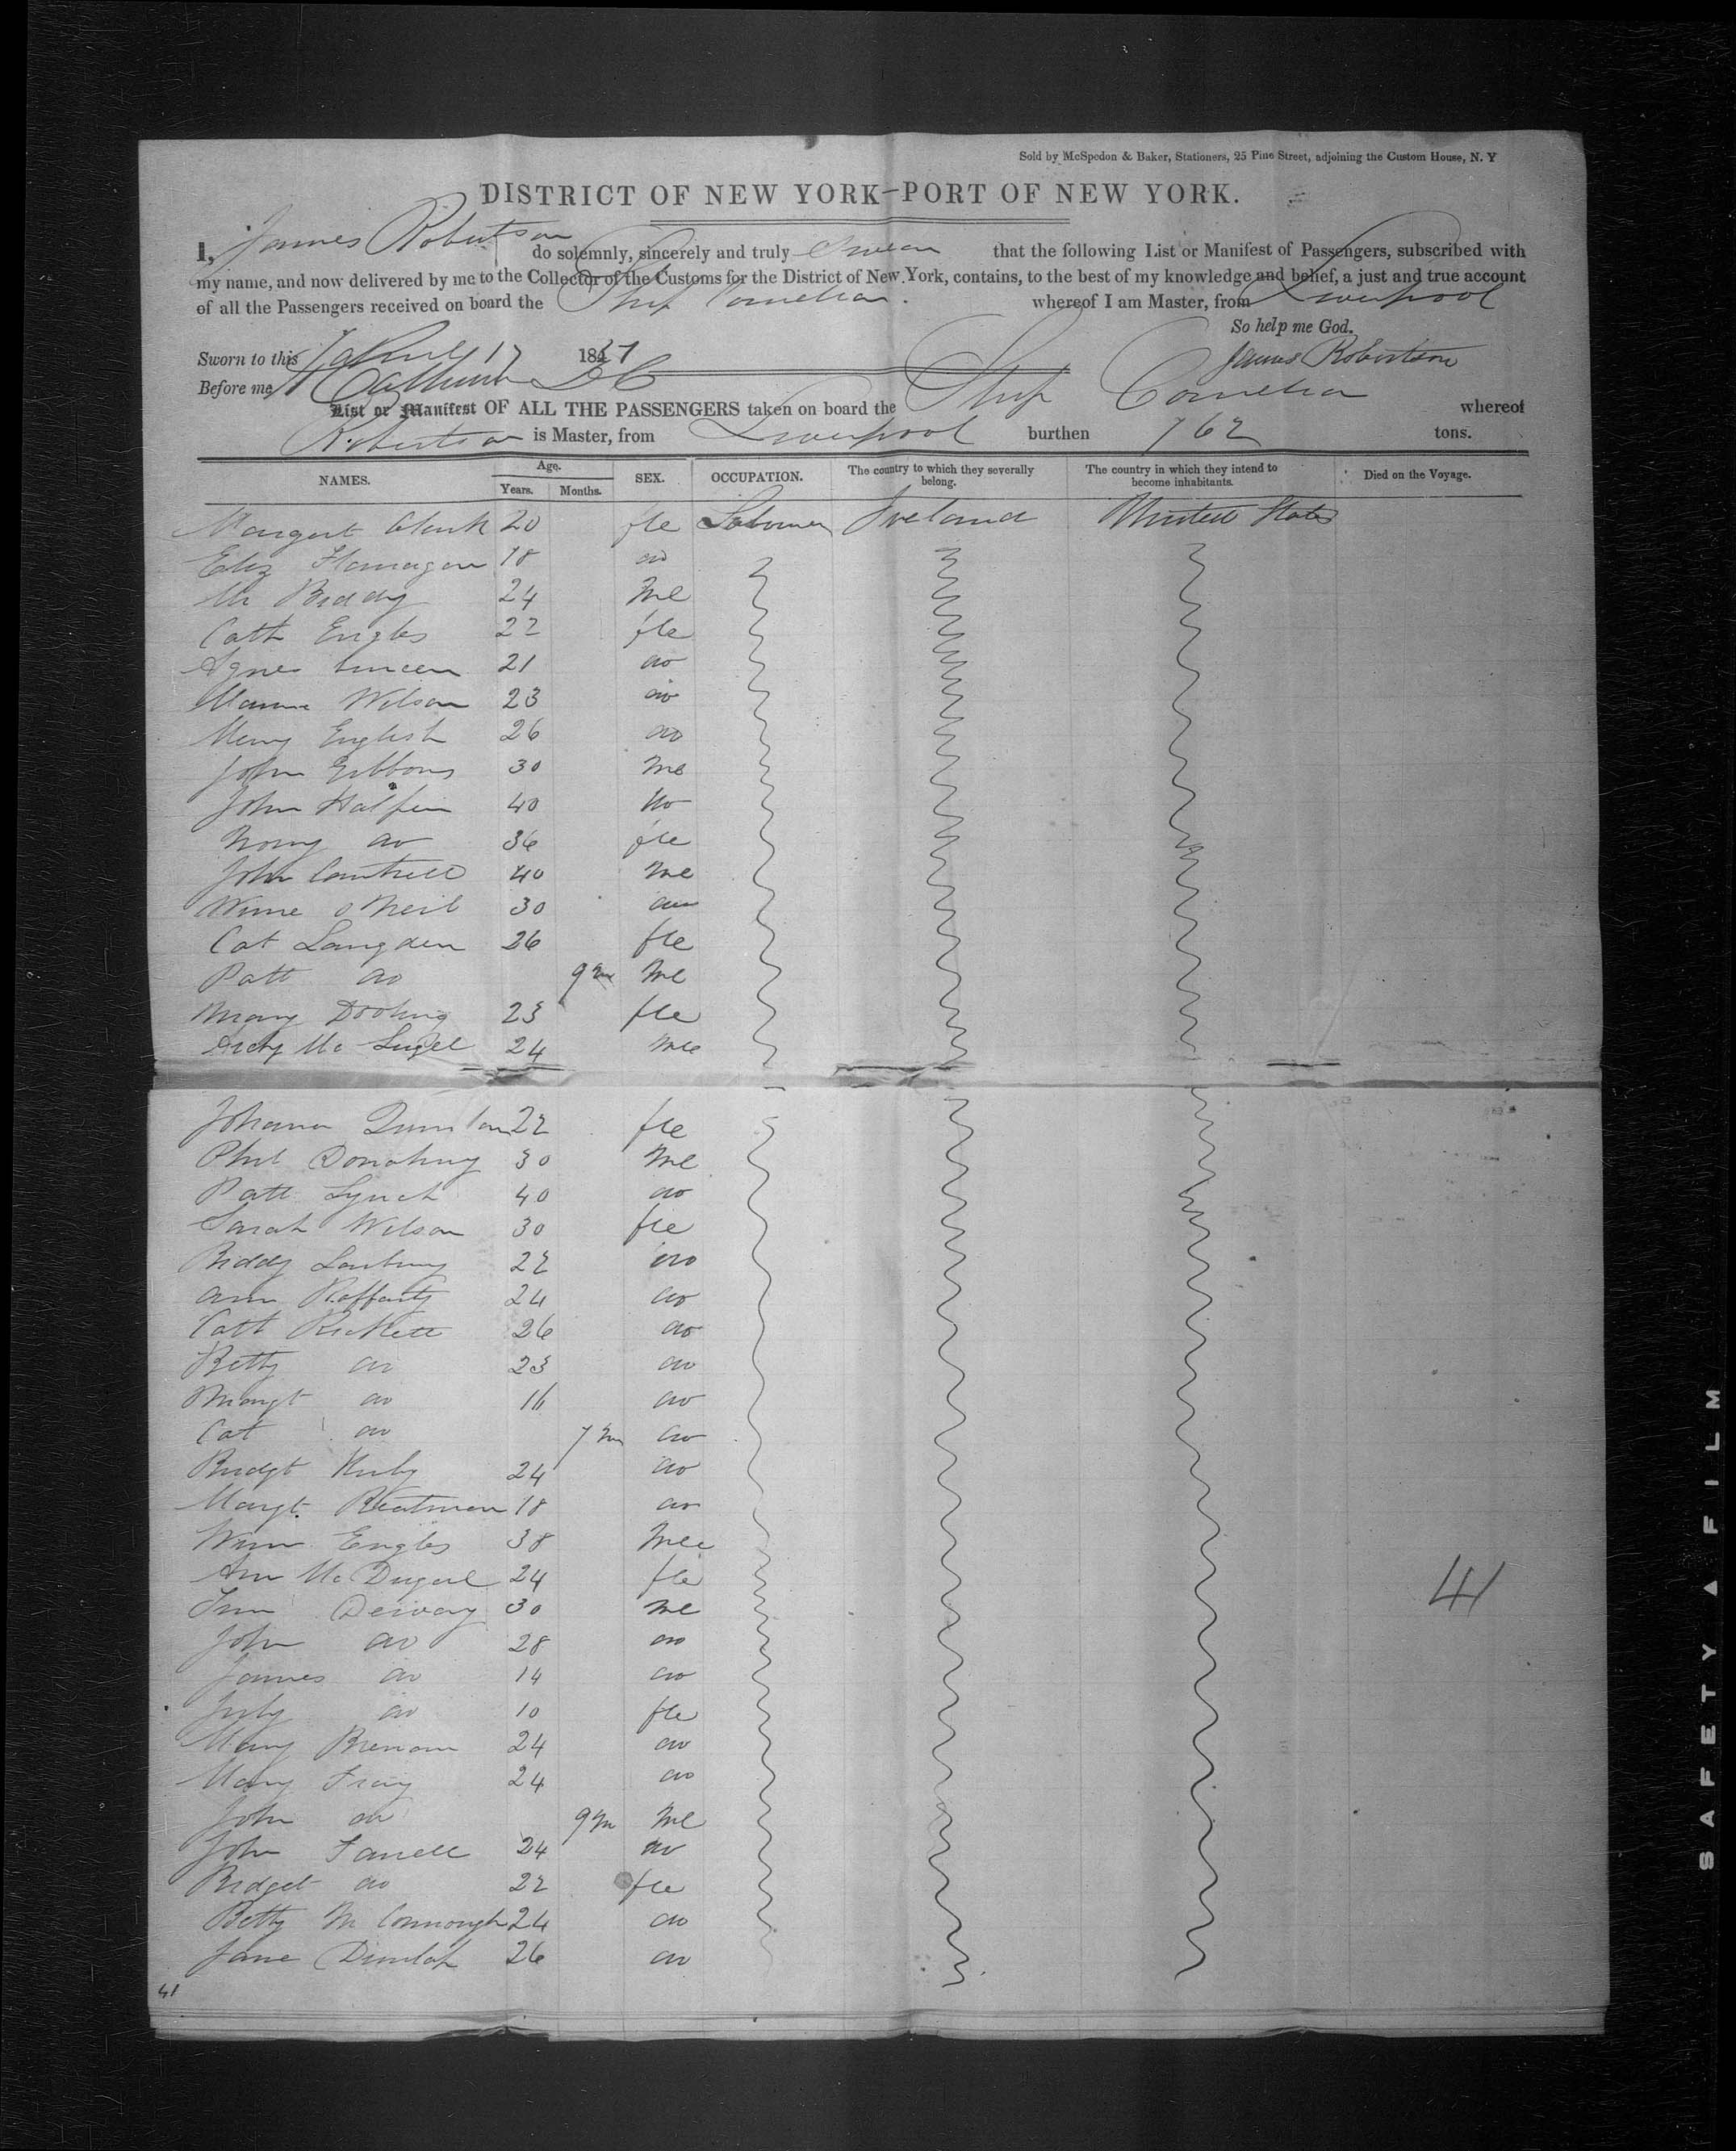 Sold by McSpedon & Baker, Stationers, 25 Pine Street, adjoining the Custom House, N. Y
DISTRICT OF NEW YORK—PORT OF NEW YORK.
I, James Robertson do solemnly, sincerely and truly swear that the following List or Manifest of Passengers, subscribed with
my name, and now delivered by me to the Collector of the Customs for the District of New York, contains, to the best of my knowledge and belief, a just and true account
of all the Passengers received on board the Ship Cornelia. whereof I am Master, from Liverpool
So help me God.
Sworn to this 17 1847 James Robertson
Before me
List or Manifest OF ALL THE PASSENGERS taken on board the Ship Cornelia whereof
Robertson is Master, from Liverpool burthen 762 tons.
NAMES. Age. Years. Months. SEX. OCCUPATION. The country to which they severally belong. The country in which they intend to become inhabitants. Died on the Voyage.
Margret 20 fle Labourer Ireland United States
Eliz Flannagan 18 do
Biddy 24 Me
Cath Engles 22 fle
Agnes 21 do
Wilson 23 do
Mary English 26 do
John Gibbons 30 Me
John Halfin 40 do
do 36 fle
John Cantrell 40 Me
O Neil 30 do
Cat Langden 26 fle
Patt do 9 m Me
Mary Dooling 23 fle
24 Me
Johanna Quinlan 22 fle
Phil Donohuy 30 Me
Patt Lynch 40 do
Sarah Wilson 30 fle
Biddy 22 do
Ann Rafferty 24 do
Catt Rickett 26 do
Betty do 23 do
Margt do 16 do
Cat do 7 m do
Bridgt 24 do
Margt 18 do
Engles 38 Mle
Ann Mc Dugal 24 fle
30 Me
John do 28 do
James do 14 do
July do 10 fle
Mary Brenan 24 do
Mary 24 do
John do 9 m Me
John Farrell 24 do
Bridget do 22 fle
Betty McConnough 24 do
Jane Dunlap 26 do
41
41
SAFETY FILM